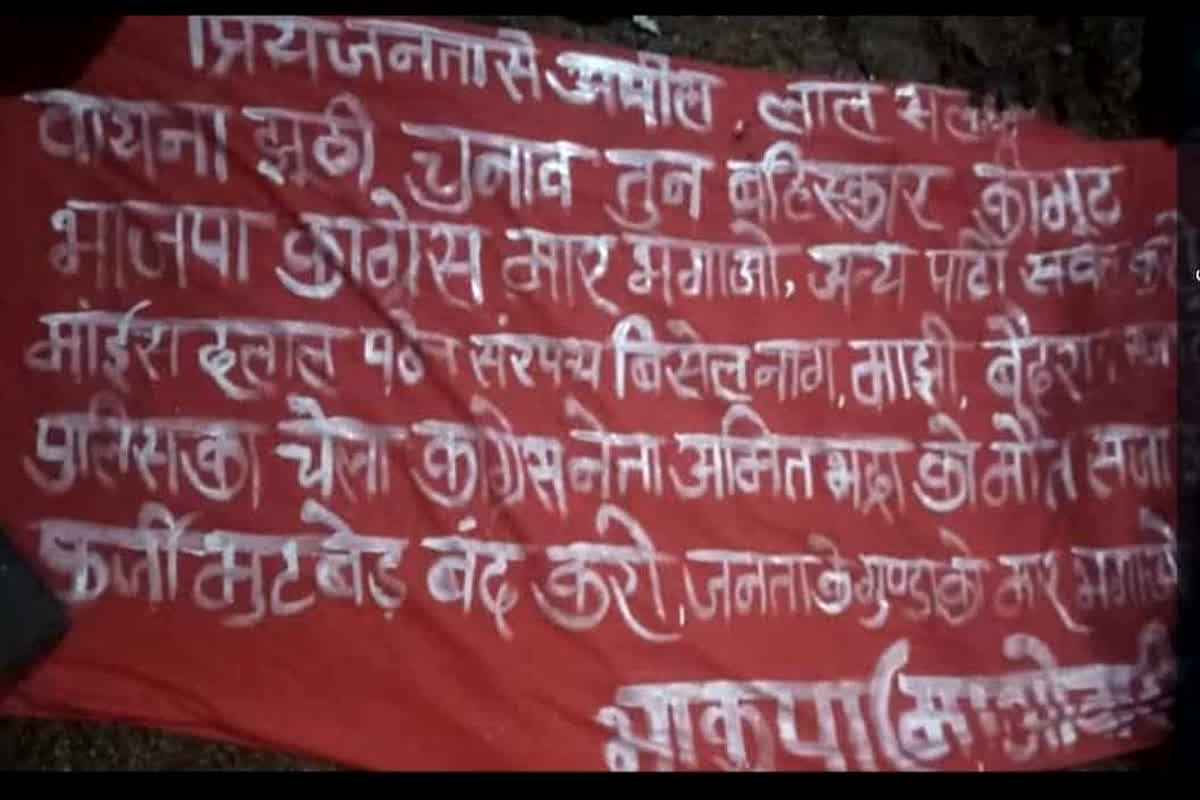 प्रिय जनता से अपील, लाल सलाम
वायना झुठी चुनाव तुन बहिस्कार कीमुट
भाजपा काग्रेस मार भगाओ, अन्य पार्टी सबक करो
माईस दलाल सरंपच्य बिसेल नाग, माझी,
पुलिस का चेला काग्रेस नेता अमित भद्रा को मौत सजा
फर्जी मुटबेड़ बंद करो, जनता के गुण्डा को मार भगाओ
भाकपा (माओवादी